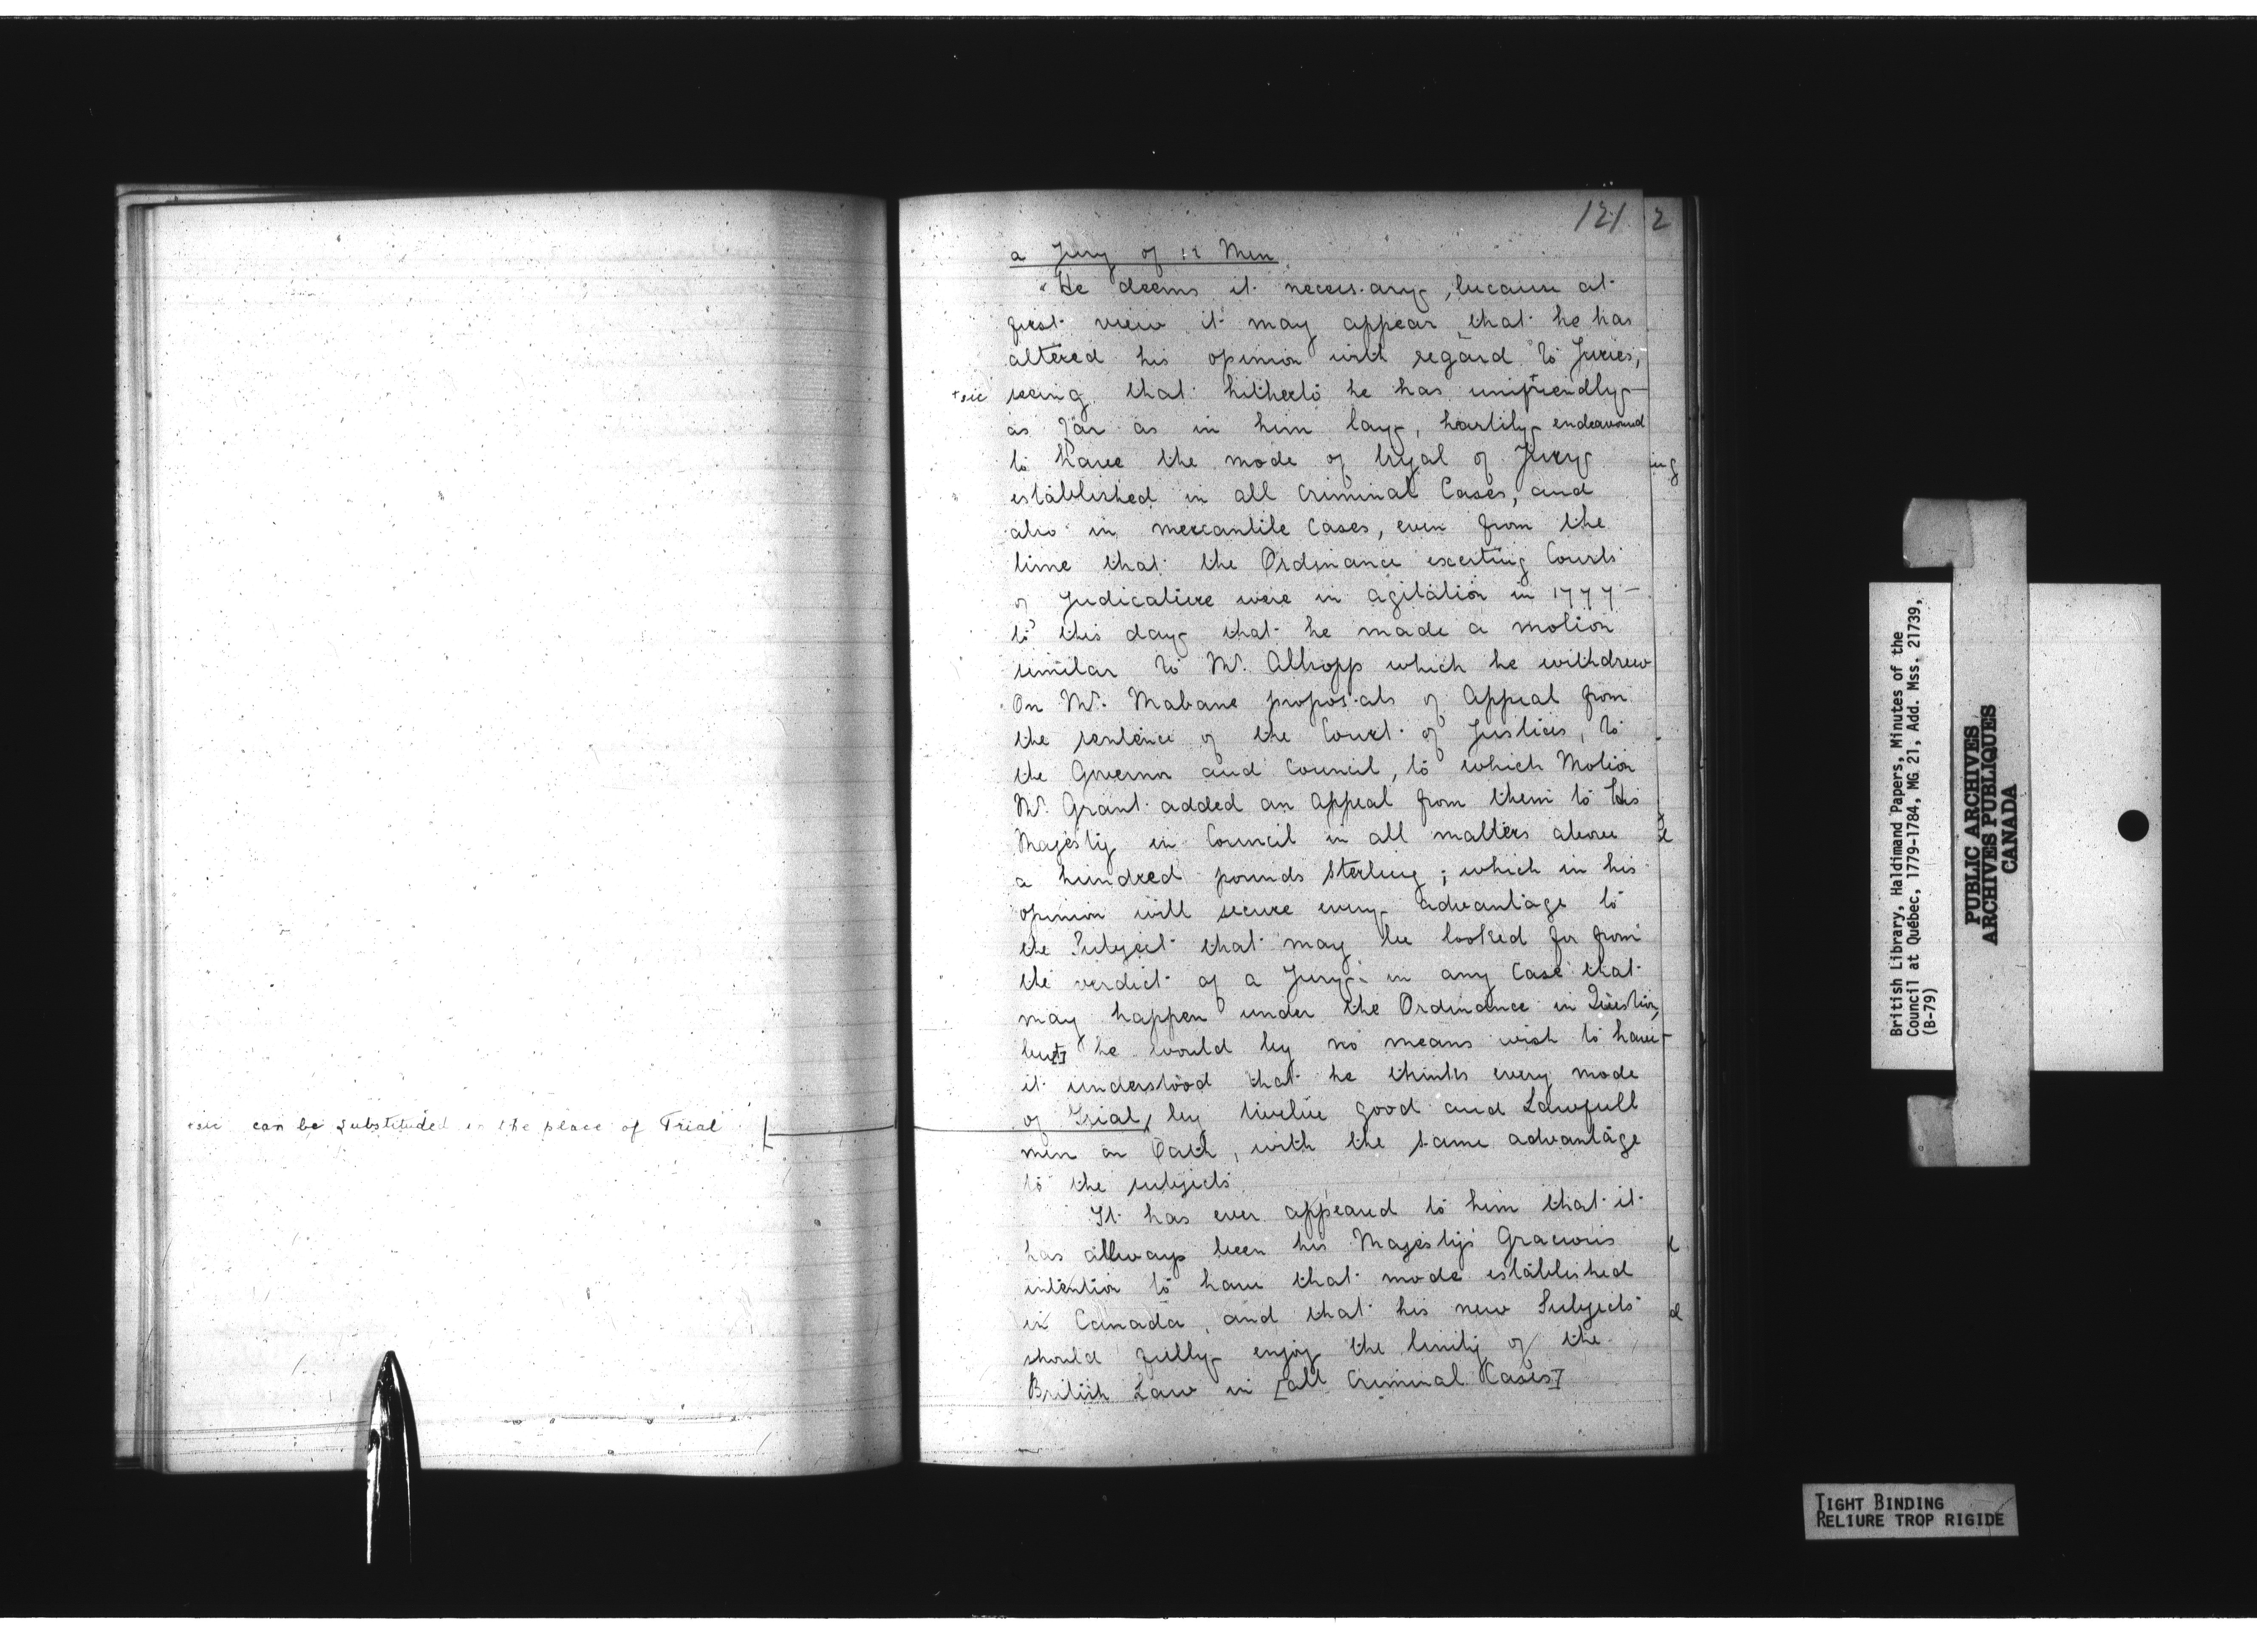 121 2
a Jury of 12 Men
"He deems it necessary, because at
first view it may appear that he has
altered his opinion with regard to Juries,
+sic seeing that hitherto he has unifriendly
as far as in him lay, hartily endeavoured
to have the mode of tryal of Jury
established in all Criminal Cases, and
also in mercantile Cases, even from the
time that the Ordinance exerting Courts
of Judicature were in agitation in 1777
to this day that he made a motion
similar to Mr. Allsopp which he withdrew
On Mr. Mabane proposals of Appeal from
the sentence of the Court of Justices, to
the Governor and Council, to which Motion
Mr. Grant added an appeal from them to His
Majesty in Council in all matters above
a hundred pounds Sterling; which in his
opinion will secure every advantage to
the Subject that may be looked for from
the verdict of a Jury in any Case that
may happen under the Ordinance in Question,
bu[t] he would by no means wish to have
it understood that he thinks every mode
+sic can be substituded in the place of Trial
of Trial, by twelve good and Lawfull
men on Oath, with the same advantage
to the subjects
It has ever appeared to him that it
has allways been his Majesty's Gracious
intention to have that mode established
in Canada, and that his new Subjects
should fully enjoy the linity of the
British Law in [all Criminal Cases]
British Library, Haldimand Papers, Minutes of the
Council at Québec, 1779-1784, MG 21, Add. Mss. 21739,
(B-79)
PUBLIC ARCHIVES
ARCHIVES PUBLIQUES
CANADA
TIGHT BINDING
RELIURE TROP RIGIDE